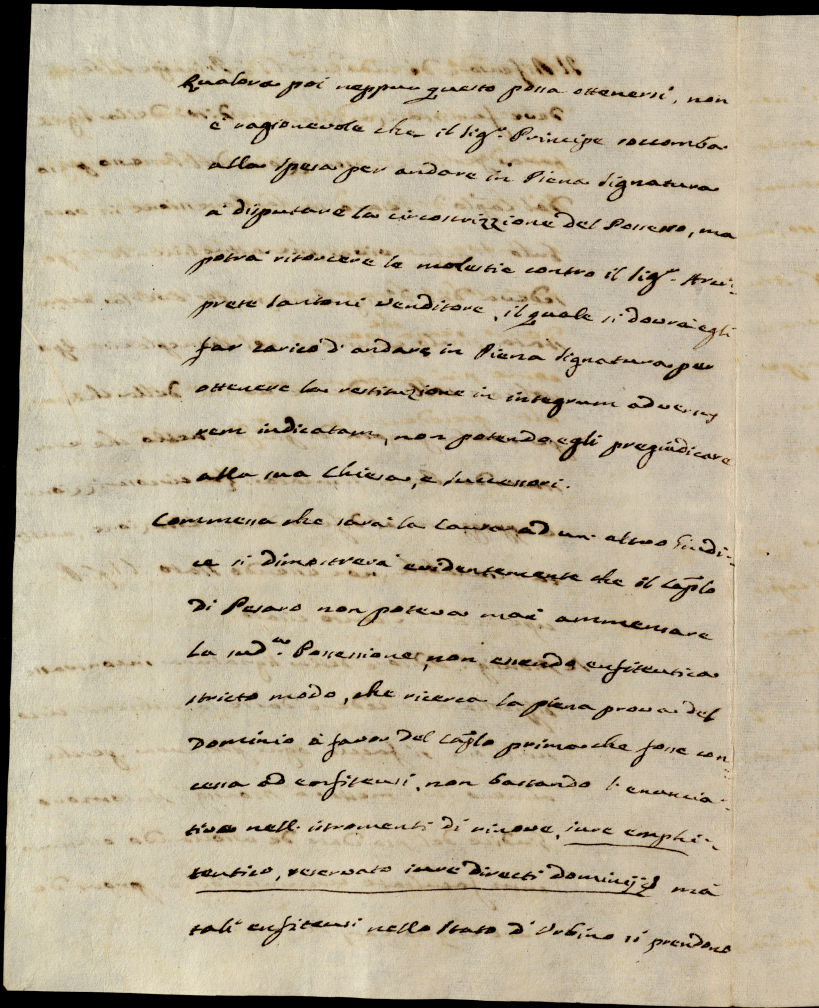 Qualora poi neppur questo possa ottenersi, non
è ragionevole che il Sig.r Principe soccomba
alla spesa per andare in Piena Signatura
à disputare la circoscrizzione del Possesso, ma
potrà ritorcere le molestie contro il Sig.r Arci-
prete Santoni venditore, il quale si dovrà egli
far carico d'andare in Piena Signatura per
ottenere la restituzione in integrum adversus
rem iudicatam, non potendo egli pregiudicare
alla sua Chiesa, e successori.
Commessa che sarà la Causa ad un altro Giudi-
ce si dimostrerà evidentemente che il Caplo
di Pesaro non poteva mai ammensare
la sud.a Possessione, non essendo enfiteutica
stricto modo, che ricerca la piena prova del
Dominio à favor del Caplo prima che fosse con-
cessa ad enfiteusi, non bastando l'enuncia-
tiva nell'istromenti di rinove, iure emphi-
teutico, reservato iure directi Dominij, mà
tali enfiteusi nello Stato d'Urbino si prendono